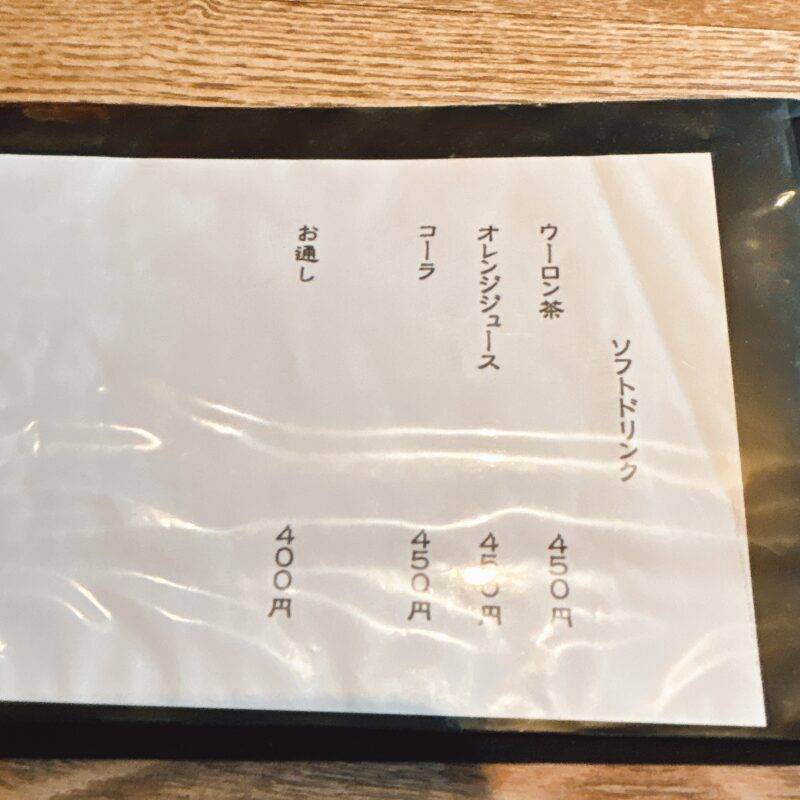 ソフトドリンク
ウーロン茶 450円
オレンジジュース 450円
コーラ 450円
お通し 400円